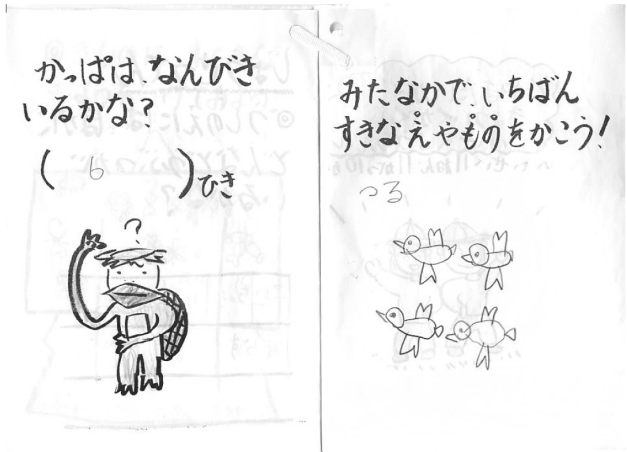 かっぱは、なんびき
いるかな？
( 6 )ひき
?
みたなかで、いちばん
すきなえやものをかこう！
つる